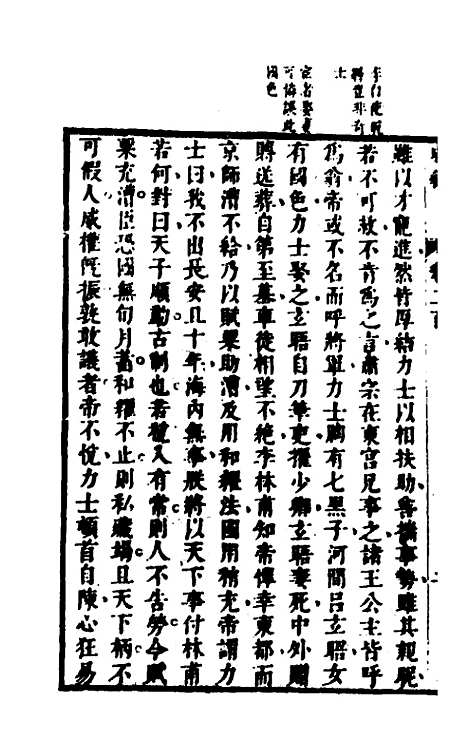 李白使脫
靴豈非奇
士
宦者娶妻
國色
雖以才寵進然皆厚結力士以相扶助善揣事勢雖其親昵
若不可救不肯爲之言肅宗在東宮兄事之諸王公主皆呼
爲翁帝或不名而呼將軍力士胸有七黑子河間呂玄晤女
有國色力士娶之玄晤自刀筆吏擢少卿玄晤妻死中外贈
賻送葬自第至墓車徒相望不絕李林甫知帝憚幸東都而
京師漕不給乃以賦粟助漕及用和糴法國用稍充帝謂力
士曰我不出長安且十年海內無事朕將以天下事付林甫
若何對曰天子順動古制也若稅入有常則人不告勞今賦
粟充漕臣恐國無旬月蓄和糴不止則私藏竭且天下柄不
可假人威權旣振孰敢議者帝不悅力士頓首自陳心狂易